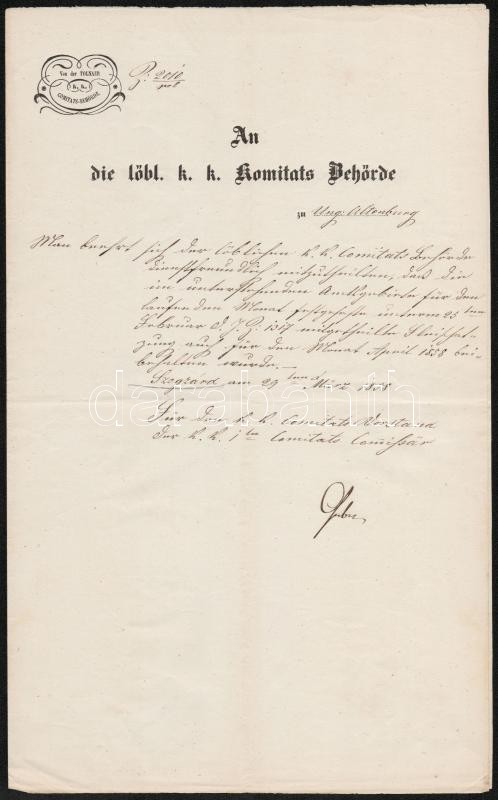 Von der TOLNAER
K. K.
COMITATS-BEHÖRDE
2010
An
die löbl. k. k. Komitats Behörde
zu Ung: Altenburg
Man beehrt sich der löblichen k. k. Comitats Behörde
dienstfreundlich mitzutheilen, daß die
im unterstehenden Amtsgebiete für den
laufenden Monat festgesetzte unterm 25ten
Februar d. J. Z: 1317 mitgetheilte Fleischsat-
zung auch für den Monat April 1858 bei-
behalten wurde.—
Szegzard am 29ten März 1858
Für den k. k. Comitats Vorstand
der k. k. 1te Comitats Commissär
darabanth